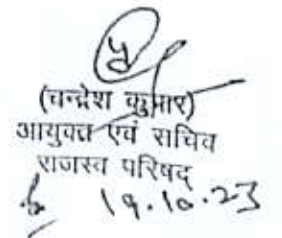 (चन्द्रेश कुमार)
आयुक्त एवं सचिव
राजस्व परिषद्
19.10.23